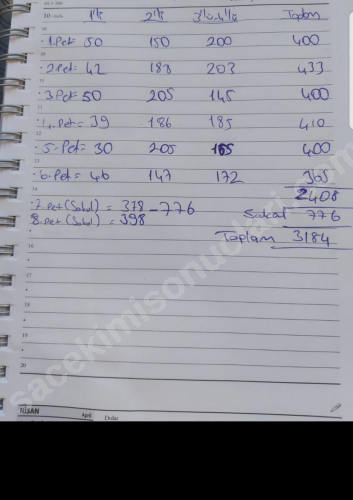 1'li 2'li 3'lü-4'lü Toplam
1.Pet= 50 150 200 400
2.Pet= 42 188 203 433
3.Pet= 50 205 145 400
4.Pet= 39 186 185 410
5.Pet= 30 205 165 400
6.Pet= 46 147 172 365
2408
7.Pet (Sakal) = 378 - 776
Sakal 776
8.Pet (Sakal) = 398
Toplam 3184
sacekimisonuclari.com
NİSAN April Dolar